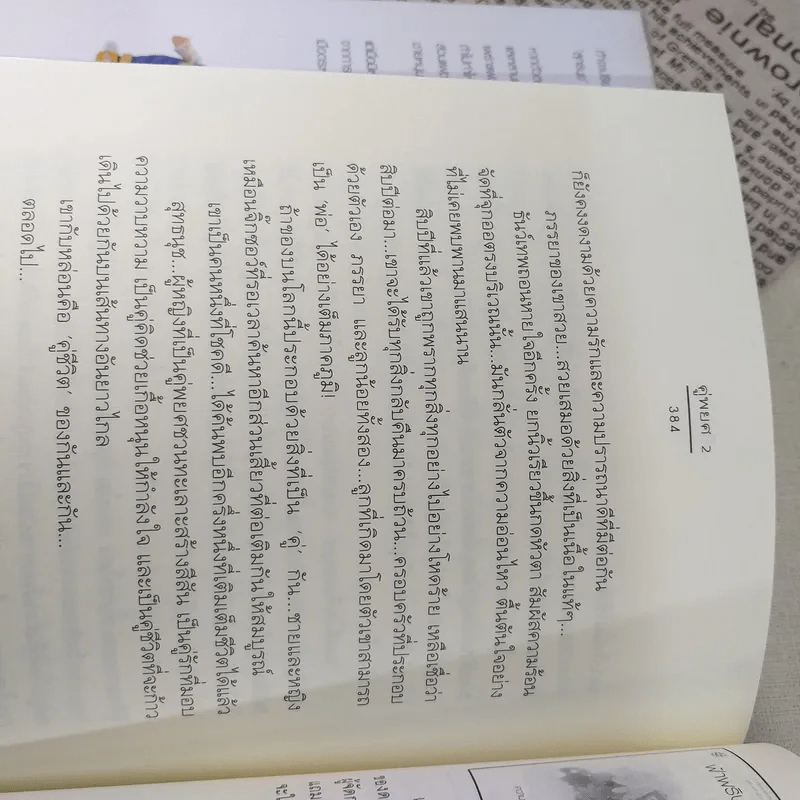 คู่พยศ 2
384
ก็ยังคงงดงามด้วยความรักและความปรารถนาดีที่มีต่อกัน
ภรรยาของเขาสวย...สวยเสมอด้วยสิ่งที่เป็นเนื้อในแท้ๆ...
ธันว์เทพถอนหายใจอีกครั้ง ยกนิ้วเรียวขึ้นกดหัวตา สัมผัสความร้อน
จัดที่จุกออตรงบริเวณนั้น...มันกลั่นตัวจากความอ่อนไหว ตื้นตันใจอย่าง
ที่ไม่เคยพบพานมาแสนนาน
สิบปีที่แล้วเขาถูกพรากทุกสิ่งทุกอย่างไปอย่างโหดร้าย เหลือเชื่อว่า
สิบปีต่อมา...เขาจะได้รับทุกสิ่งกลับคืนมาครบถ้วน...ครอบครัวที่ประกอบ
ด้วยตัวเอง ภรรยา และลูกน้อยทั้งสอง...ลูกที่เกิดมาโดยตัวเขาสามารถ
เป็น 'พ่อ' ได้อย่างเต็มภาคภูมิ!
ถ้าของบนโลกนี้ประกอบด้วยสิ่งที่เป็น 'คู่' กัน...ชายและหญิง
เหมือนจิ๊กซอว์ที่รอเวลาค้นหาอีกส่วนเสี้ยวที่ต่อเติมกันให้สมบูรณ์
เขาเป็นคนหนึ่งที่โชคดี...ได้ค้นพบอีกครึ่งหนึ่งที่เติมเต็มชีวิตได้แล้ว
สุทธนุช...ผู้หญิงที่เป็นคู่พยศชวนทะเลาะสร้างสีสัน เป็นคู่รักที่มอบ
ความหวานหวาม เป็นคู่คิดช่วยเกื้อหนุนให้กำลังใจ และเป็นคู่ชีวิตที่จะก้าว
เดินไปด้วยกันบนเส้นทางอันยาวไกล
เขากับหล่อนคือ 'คู่ชีวิต' ของกันและกัน...
ตลอดไป...